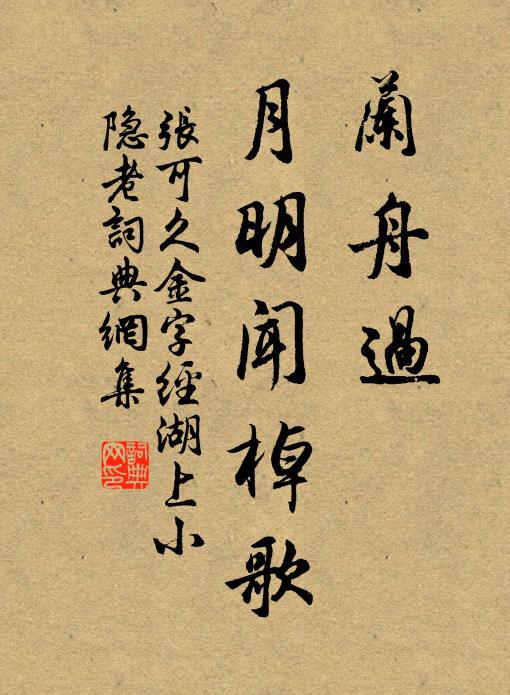 蘭舟過
月明聞棹歌
張可久金字經湖上小
隐老詞典網集
詞典网印